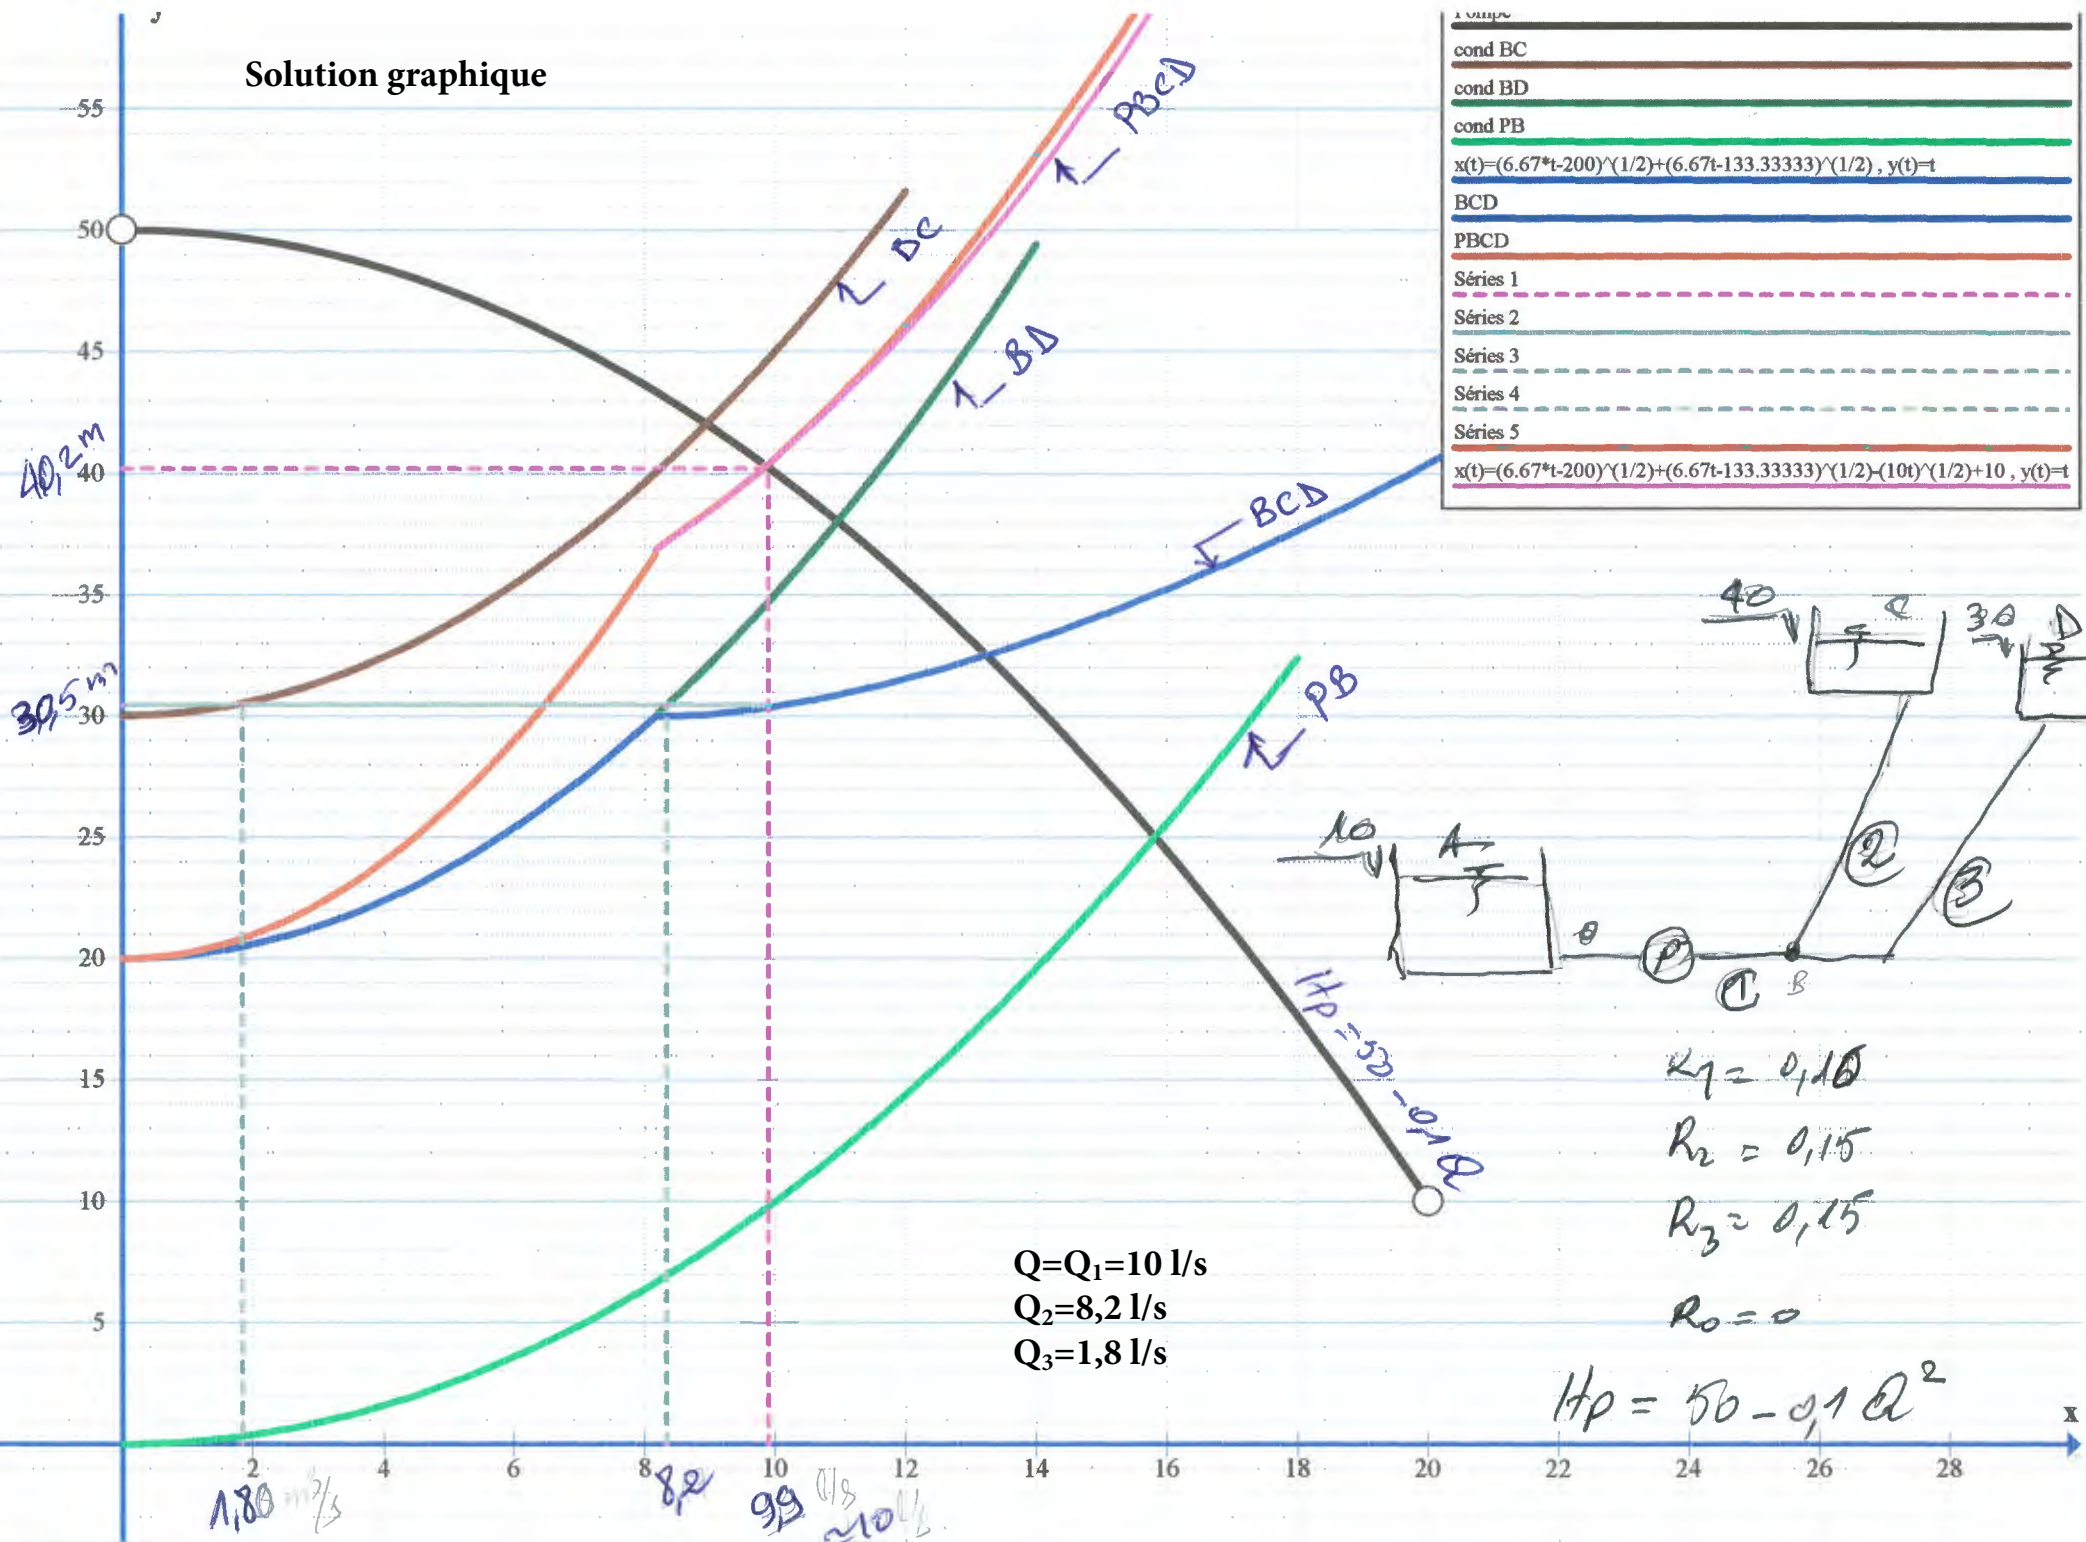 Solution graphique
y
55
50
45
40
35
30
25
20
15
10
5
40,2 m
30,5 m
2 4 6 8 10 12 14 16 18 20 22 24 26 28
x
8,2
9,9 l/s
~10 l/s
BC
BD
PBCD
BCD
PB
Hp = 50 - 0,1 Q
Pompe
cond BC
cond BD
cond PB
x(t)=(6.67*t-200)^(1/2)+(6.67t-133.33333)^(1/2) , y(t)=t
BCD
PBCD
Séries 1
Séries 2
Séries 3
Séries 4
Séries 5
x(t)=(6.67*t-200)^(1/2)+(6.67t-133.33333)^(1/2)-(10t)^(1/2)+10 , y(t)=t
40 C
30 D
10 A
0
P
1
B
2
3
R1 = 0,10
R2 = 0,15
R3 = 0,15
R0 = 0
Hp = 50 - 0,1 Q²
Q=Q₁=10 l/s
Q₂=8,2 l/s
Q₃=1,8 l/s